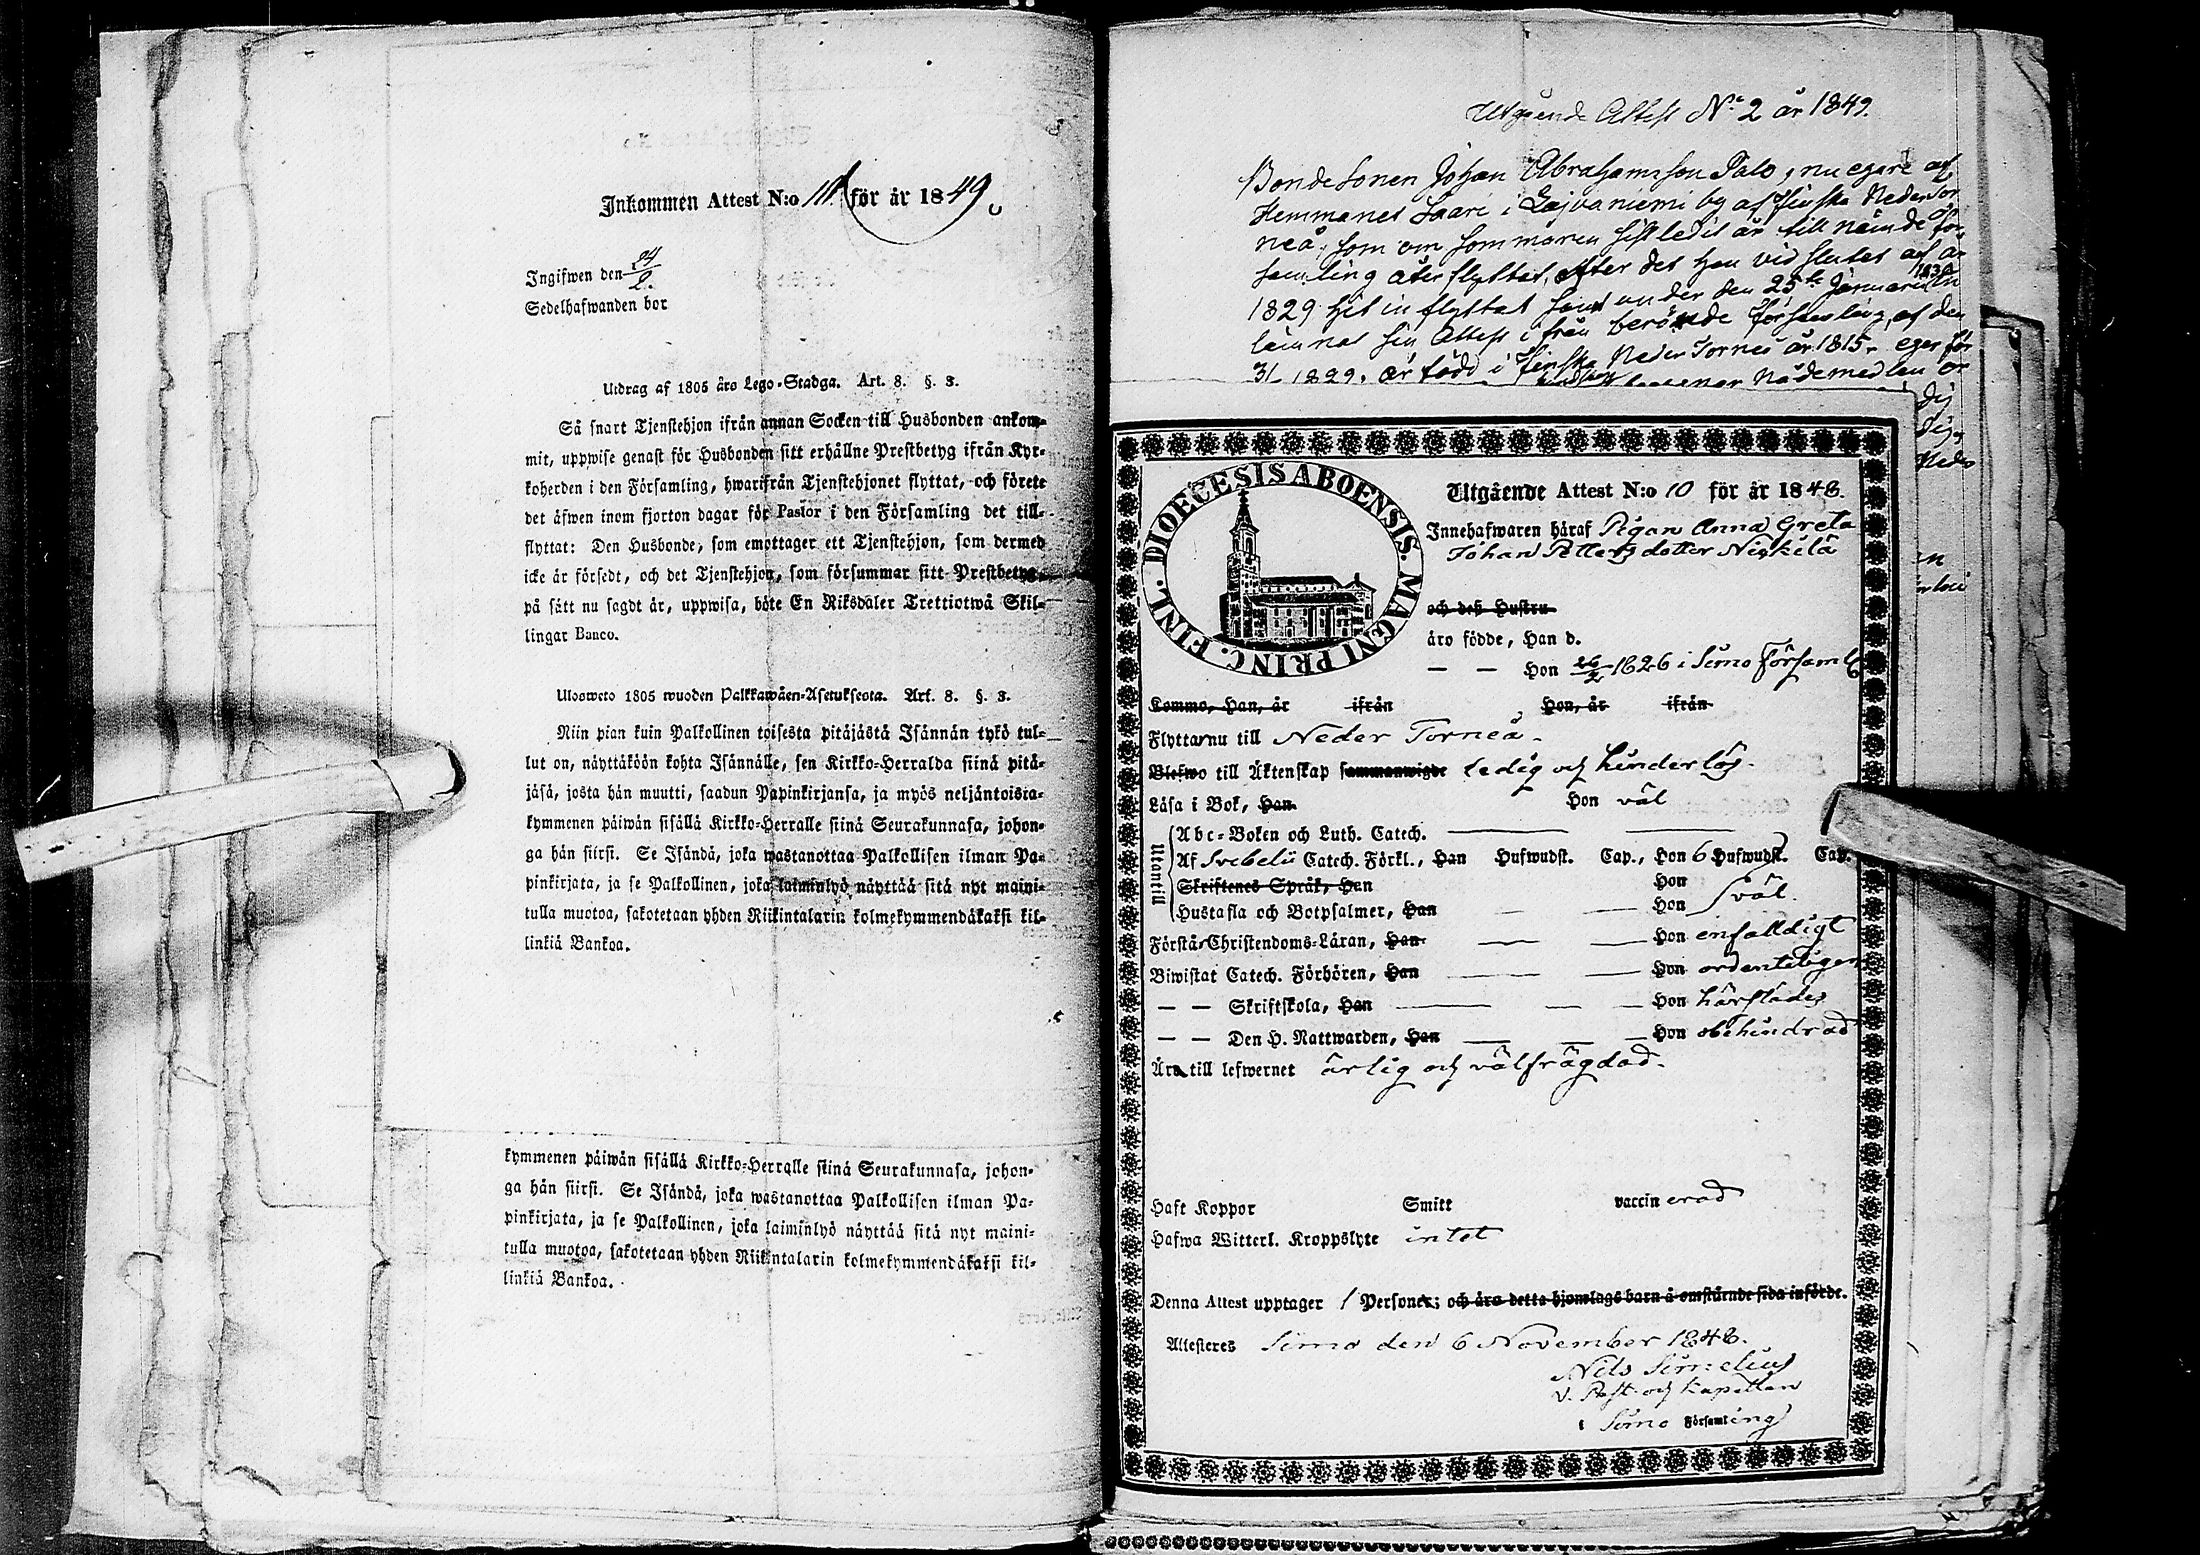 Inkommen Attest N:o för år 1849
Ingifwen den 24/2.
Sedelhafwanden bor
Utdrag af 1805 års Lego-Stadga. Art. 8. §. 3.
Så snart Tjenstehjon ifrån annan Socken till Husbonden ankom-
mit, uppwise genast för Husbonden sitt erhållne Prestbetyg ifrån Kyr-
koherden i den Församling, hwarifrån Tjenstehjonet flyttat, och förete
det äfwen inom fjorton dagar för Pastor i den Församling det till-
flyttat: Den Husbonde, som emottager ett Tjenstehjon, som dermed
icke är försedt, och det Tjenstehjon, som försummar sitt Prestbetyg,
på sätt nu sagdt är, uppwisa, böte En Riksdaler Trettiotwå Skil-
lingar Banco.
Ulosweto 1805 wuoden Palkkawäen-Asetuksesta. Art. 8. §. 3.
Niin pian kuin Palkollinen toisesta pitäjästä Isännän tykö tul-
lut on, näyttäköön kohta Isännälle, sen Kirkko-Herralda siinä pitä-
jäsä, josta hän muutti, saadun Papinkirjansa, ja myös neljäntoista-
kymmenen päiwän sisällä Kirkko-Herralle siinä Seurakunnasa, johon-
ga hän siirsi. Se Isändä, joka wastanottaa Palkollisen ilman Pa-
pinkirjata, ja se Palkollinen, joka laiminlyö näyttää sitä nyt maini-
tulla muotoa, sakotetaan yhden Riikintalarin kolmekymmendäkaksi kil-
linkiä Bankoa.
kymmenen päiwän sisällä Kirkko-Herralle siinä Seurakunnasa, johon-
ga hän siirsi. Se Isändä, joka wastanottaa Palkollisen ilman Pa-
pinkirjata, ja se Palkollinen, joka laiminlyö näyttää sitä nyt maini-
tulla muotoa, sakotetaan yhden Riikintalarin kolmekymmendäkaksi kil-
linkiä Bankoa.
Utgående Attest No 2 år 1849.
Bondesonen Johan Abrahamsson Palo, nu egare af
Hemmanet Saari i Laivaniemi by af Finska Neder Tor
neå, som om sommaren sistledit år till nämde för
samling återflyttat, efter det han vid slutet af år
1829 hit inflyttat samt under den 25te Januarii 1830
lämnat sin Attest ifrån berörde församling, af den
31 1829. är född i Finska Neder Torneå år 1815. eger för
DIOECESIS ABOENSIS. MAGNI PRINC. FINL.
Utgående Attest N:o 10 för år 1848.
Innehafwaren häraf Pigan Anna Greta
Johan Pettersdotter Niskelä
och deß Hustru
äro födde, Han d.
— — Hon 26/2 1826 i Simo Församl
Kommo, Han, år ifrån Hon, år ifrån
Flytta nu till Neder Torneå.
Blefwo till Äktenskap sammanwigde ledig och hinderlös.
Läsa i Bok, Han Hon väl
Utantill
Abc-Boken och Luth. Catech.
Af Svebelii Catech. Förkl., Han Hufwudst. Cap., Hon 6 Hufwudst. Cap.
Skriftenes Språk, Han Hon
Hustafla och Botpsalmer, Han — — Hon väl.
Förstå Christendoms-Läran, Han — — Hon enfaldigt
Biwistat Catech. Förhören, Han — — Hon ordenteligen
— — Skriftskola, Han — — Hon härstädes
— — Den H. Nattwarden, Han — — Hon obehindrad
Äro till lefwernet ärlig och välfrägdad.
Haft Koppor Smitt vaccinerad
Hafwa Witterl. Kroppslyte intet
Denna Attest upptager 1 Personer; och äro detta hjonelags barn å omstående sida införde.
Attesteres Simo den 6 November 1848.
Nils Simelius
v. Past. och Kapellan
i Simo Församling